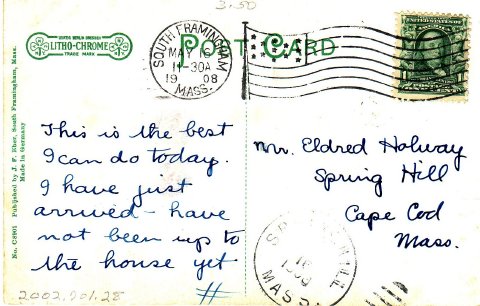 3.50
LEIPZIG BERLIN DRESDEN
LITHO-CHROME
TRADE MARK
POST CARD
SOUTH FRAMINGHAM
MAY 16
11-30A
1908
MASS.
UNITED STATES OF AMERICA
This is the best
I can do today.
I have just
arrived - have
not been up to
the house yet
#
Mr. Eldred Holway
Spring Hill
Cape Cod
Mass.
SPRING HILL
MASS.
No. C8801 Published by J. F. Eber, South Framingham, Mass.
Made in Germany
2002.201.28